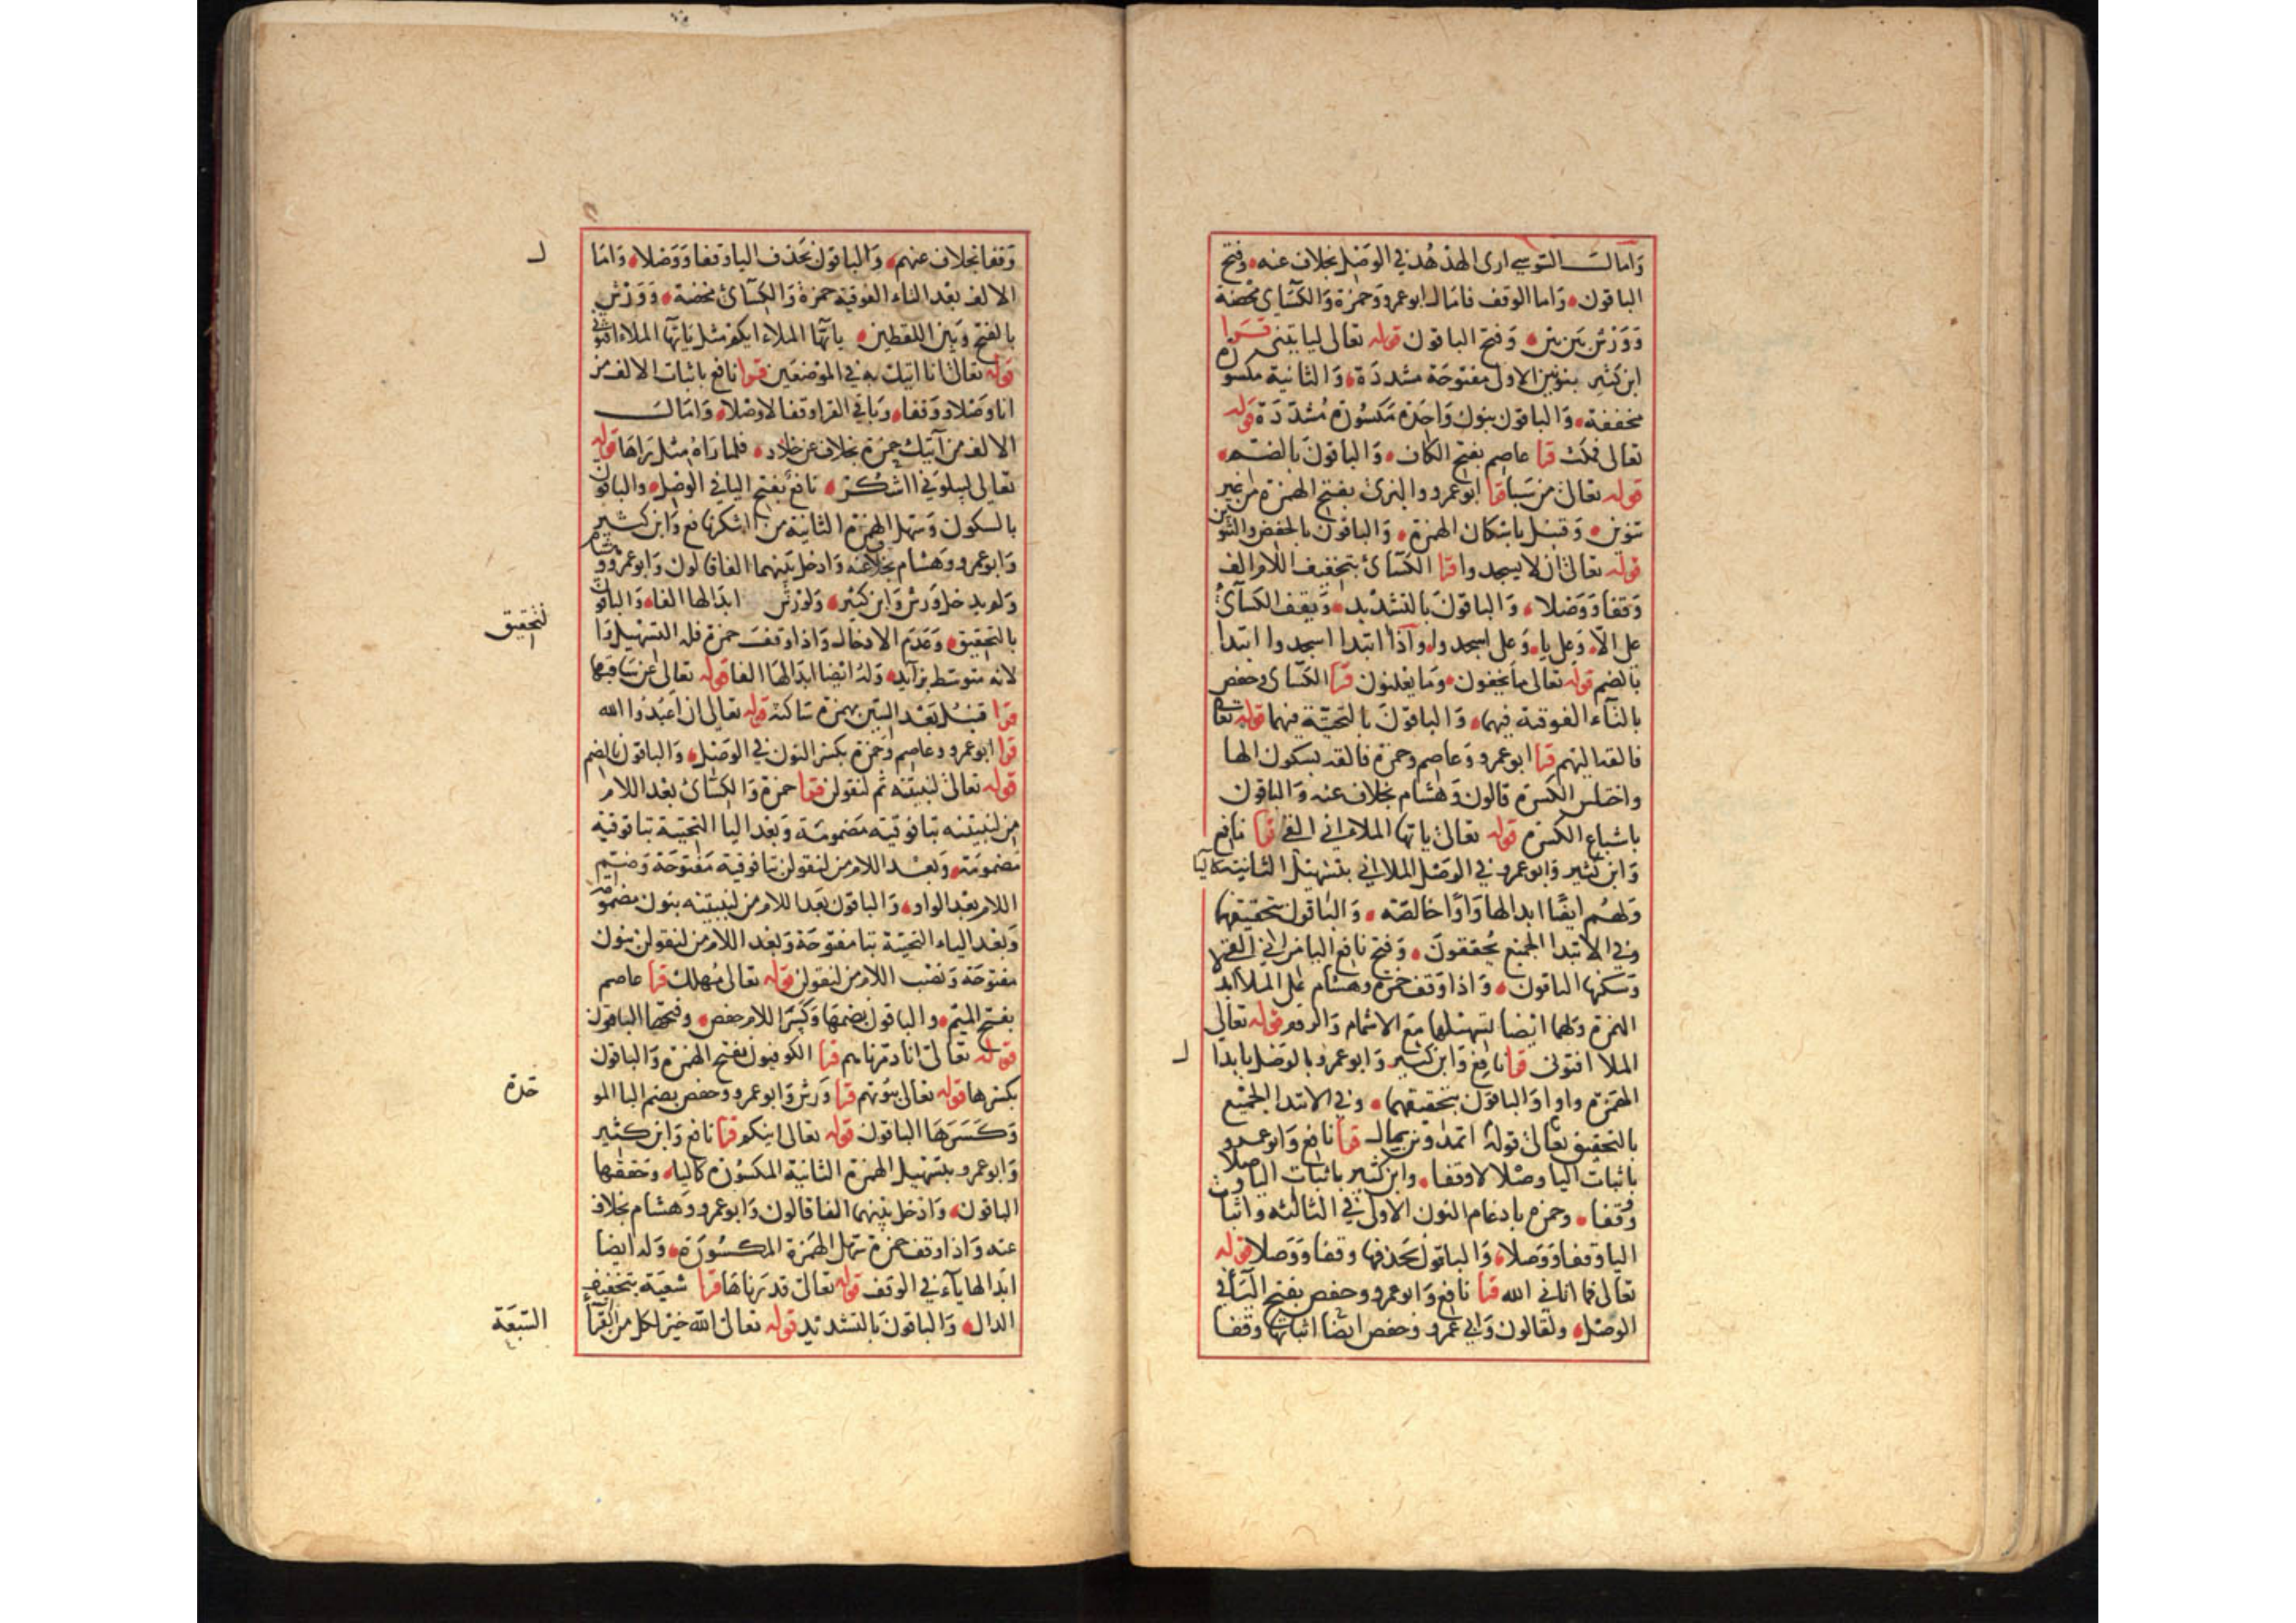 وَامَالَ السوسي ارى الهدهُد في الوَصْل بخلاف عنه وفتح
الباقون وَاما الوقف فامَال ابو عمرو وَحمزة وَالكسَّاى محضة
وَوَرْش بَين بَين وَفتح الباقون قوله تعالى لياتينى قَرا
ابن كثير بنونين الاولى مفتوحَة مشددَة وَالثانية مكسورة
مخففة وَالباقون بنون وَاحدة مَكسُورة مُشدّدَة قوله
تعالى فمكث قرا عاصم بفتح الكاف وَالباقونَ بالضم
قوله تعالى من سَبا قرا ابو عمرو والبزى بفتح الهمزة من غير
تنوين وَقنبل باسكان الهمزة وَالباقون بالخفض والتنوين
قوله تعالى ان لا يسجدوا قرا الكسَائ بتخفيف اللام الف
وَقفا وَوَصْلا وَالباقونَ بالتشديد وَيقف الكسآئ
على الاّ وَعلى يا وَعلى اسجدوا وَاذا ابتدا اسجدوا ابتدا
بالضم قوله تعالى ما تخفون وَما يعلنون قرا الكسَّاى وحفص
بالتآء الفوقية فيهما وَالباقونَ بالتحتيّة فيهما قوله تعالى
فالقه اليهم قرا ابو عمرو وَعاصم وحمزة فالقه بسكون الها
واختلس الكسرَة قالون وَهشام بخلاف عنه وَالباقون
باشباع الكسرة قوله تعالى ياتها الملا انى القى قرا نافع
وَابن كثير وَابو عمرو في الوَصْل الملا انى بتسْهيل الثانية كاليا
وَلهُم ايضًا ابدالها وَاوًا خالصَة وَالباقون بتحقيقهما
وَفي الابتدا الجميع يُحققونَ وَفتح نافع اليا من انى القى
وَسكنها الباقون وَاذا وَقف حمزة وهشام على الملا ابدلا
الهمزة وَلهما ايضا تسهيلها مع الاشمام وَالروم قوله تعالى
الملا افتونى قرا نافع وَابن كثير وَابو عمرو بالوَصْل بابدال
الهَمزة واوا وَالباقون بتحقيقهما وَفي الابتدا الجميع
بالتحقيق تعالى قولهُ اتمدونن بمال قرا نافع وَابو عمرو
باثبات اليا وصْلا لا وقفا وابن كثير باثبات اليا وصلا
وَقفا وحمزة بادغام النون الاولى في الثالثه واثبات
اليا وَقفا وَوَصلا وَالباقون بحَذفها وقفا وَوَصلا قوله
تعالى فما اتانى الله قرا نافع وَابو عمرو وحفص بفتح اليَاء في
الوصْل ولقالون وَابى عمرو وَحفص ايضًا اثباتها وقفا
وَقفا بخلاف عنهم وَالباقون بحَذف اليا وَقفا وَوَصْلا وَامَا
الالف بعد التاء الفوقية حمزة وَالكسَآئ محضة وَوَرْش
بالفتح وَبَين اللفظين يآتها الملاء ايكم مثل يآتها الملاء افتونى
قوله تعالى انا اتيك به في الموضعَين قرا نافع باثبات الالف من
انا وَصْلا وَوَقفا وَباقي القرا وَقفا لا وَصْلا وَامَالَ
الالف من آتيك حمزة بخلاف عن خلاد فلما رآه مثل رَاها قوله
تعالى ليبلوَنى ااشكرُ نافع بفتح اليا في الوَصْل والباقون
بالسكون وَسهل الهمزة الثانية من ااشكر نافع وَابن كثير
وَابو عمرو وَهشام بخلاف عنه وَادخل بَينهما الفا قالون وَابو عمرو وهشام
وَلم يدخل وَرش وَابن كثير وَلوَرْش ابدَالها الفا وَالباقون
بالتحقيق وَعَدَم الادخال وَاذا وَقفَ حمزة فله التسهيل وَا
لتحقيق
لانه متوَسط بزآيد وَلهُ ايضا ابدَالهَا الفا قوله تعالى عن سَاقيها
قرا قنبُل بَعْد السّين بهمزة سَاكنة قوله تعالى ان اعْبُدُوا الله
قرا ابو عمرو وعاصم وَحمزة بكسْر النون في الوَصْل وَالباقون بالضم
قوله تعالى لنبيتنه ثم لنقولن قرا حمزة وَالكسَّائ بعْد اللام
من لنبيتنه بتا فوقية مَضمومَة وَبَعْد اليا التحتيّة بتا فوقية
مَضمومَة وَبعْد اللام من لنقولن بتا فوقية مَفتوحَة وَضم
اللام بعْد الواو وَالباقون بَعد اللام من لنبيتنه بنون مضمومة
وَبعْد الياء التحيّة بتا مفتوحَة وَبَعْد اللام من لنقولن بنون
مفتوحَة وَنصْب اللام من لنقولن قوله تعالى مُهلك قرا عاصم
بفتح الميم والباقون بضمها وَكسَر اللام حفص وفتحها الباقون
قوله تعالى انا دمّرناهم قرا الكوفيون بفتح الهمزة وَالباقون
بكسْرها قوله تعالى بيُوتهم قرا وَرش وَابو عمرو وحفص بضم البا المو
حّدة
وَكَسَرَهَا الباقون قوله تعالى اينكم قرا نافع وَابن كثير
وَابو عمرو بتسْهيل الهمزة الثانية المكسُورة كاليا وحققها
الباقون وَادخل بَينهما الفا قالون وَابو عمرو وَهشام بخلاف
عنه وَاذا وقف حمزة سَهل الهَمزة المكسُورَة وَله ايضا
ابدَالها يآء في الوقف قوله تعالى قدرْناهَا قرا شعبَة بتخفيف
الدال وَالباقون بالتشديد قوله تعالى آلله خيْر لكل من القرآء
السّبعَة